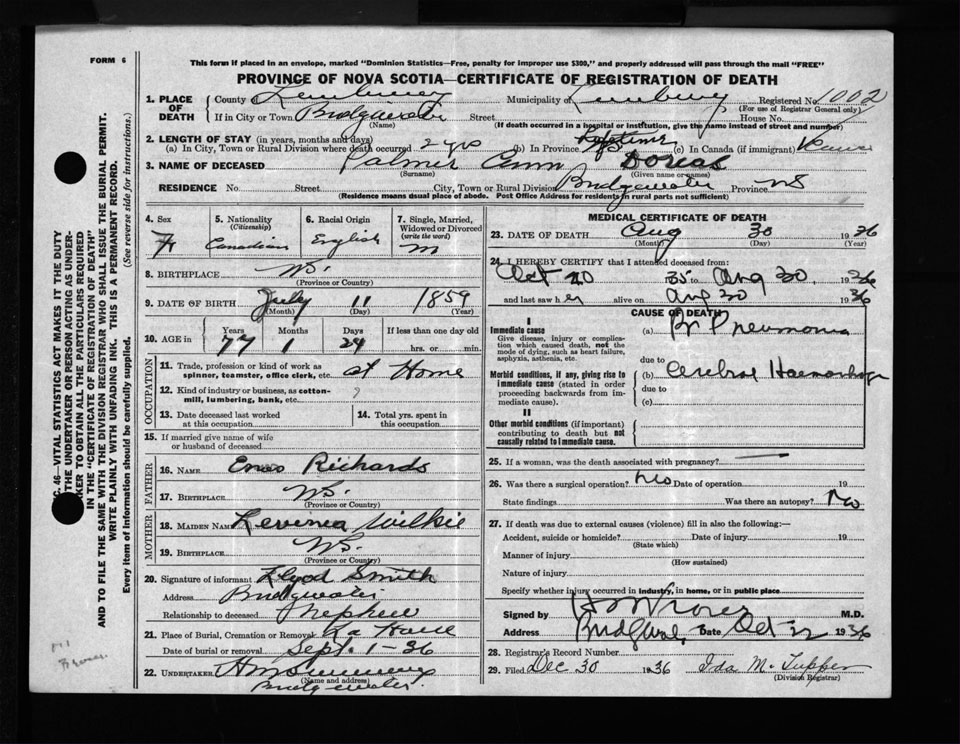 FORM 6
This form if placed in an envelope, marked "Dominion Statistics—Free, penalty for improper use $300," and properly addressed will pass through the mail "FREE"
PROVINCE OF NOVA SCOTIA—CERTIFICATE OF REGISTRATION OF DEATH
1. PLACE OF DEATH { County Lunenburg Municipality of Lunenburg Registered No. 1002
(For use of Registrar General only)
If in City or Town Bridgewater Street House No.
(Name) (If death occurred in a hospital or institution, give the name instead of street and number)
2. LENGTH OF STAY (in years, months and days)
(a) In City, Town or Rural Division where death occurred 2 yrs (b) In Province Lifetime NS (c) In Canada (if immigrant)
3. NAME OF DECEASED Palmer Ann Dorcas
(Surname) (Given name or names)
RESIDENCE No. Street City, Town or Rural Division Bridgewater Province NS
(Residence means usual place of abode. Post Office Address for residents in rural parts not sufficient)
4. Sex F
5. Nationality (Citizenship) Canadian
6. Racial Origin English
7. Single, Married, Widowed or Divorced (write the word) m
8. BIRTHPLACE NS.
(Province or Country)
9. DATE OF BIRTH July 11 1859
(Month) (Day) (Year)
10. AGE in { Years 77 Months 1 Days If less than one day old hrs. or min.
OCCUPATION
11. Trade, profession or kind of work as spinner, teamster, office clerk, etc. at Home
12. Kind of industry or business, as cotton-mill, lumbering, bank, etc. ?
13. Date deceased last worked at this occupation
14. Total yrs. spent in this occupation
15. If married give name of wife or husband of deceased
FATHER
16. NAME Enos Richards
17. BIRTHPLACE NS.
(Province or Country)
MOTHER
18. MAIDEN NAME Levinia Wilkie
19. BIRTHPLACE NS.
(Province or Country)
20. Signature of informant Lloyd Smith
Address Bridgewater
Relationship to deceased nephew
21. Place of Burial, Cremation or Removal
Date of burial or removal Sept. 1-36
22. UNDERTAKER
(Name and address)
Bridgewater.
MEDICAL CERTIFICATE OF DEATH
23. DATE OF DEATH Aug 30 1936
(Month) (Day) (Year)
24. I HEREBY CERTIFY that I attended deceased from:
Oct 20 35 to Aug 30, 1936
and last saw her alive on Aug 30 1936
CAUSE OF DEATH
I
Immediate cause (a) Br Pneumonia
Give disease, injury or complication which caused death, not the mode of dying, such as heart failure, asphyxia, asthenia, etc.
due to
Morbid conditions, if any, giving rise to immediate cause (stated in order proceeding backwards from immediate cause).
(b) Cerebral Haemorrhage
due to
(c)
II
Other morbid conditions (if important) contributing to death but not causally related to immediate cause.
25. If a woman, was the death associated with pregnancy?
26. Was there a surgical operation? No Date of operation 19
State findings Was there an autopsy? No
27. If death was due to external causes (violence) fill in also the following:—
Accident, suicide or homicide? Date of injury 19
(State which)
Manner of injury
(How sustained)
Nature of injury
Specify whether injury occurred in industry, in home, or in public place
Signed by M.D.
Address Date Oct 22 1936
28. Registrar's Record Number
29. Filed Dec 30 1936 Ida M. Tupper
(Division Registrar)
SEC. 46—VITAL STATISTICS ACT MAKES IT THE DUTY
OF THE UNDERTAKER OR PERSON ACTING AS UNDERTAKER TO OBTAIN ALL THE PARTICULARS REQUIRED
IN THE "CERTIFICATE OF REGISTRATION OF DEATH"
AND TO FILE THE SAME WITH THE DIVISION REGISTRAR WHO SHALL ISSUE THE BURIAL PERMIT.
WRITE PLAINLY WITH UNFADING INK. THIS IS A PERMANENT RECORD.
Every item of information should be carefully supplied. (See reverse side for instructions.)